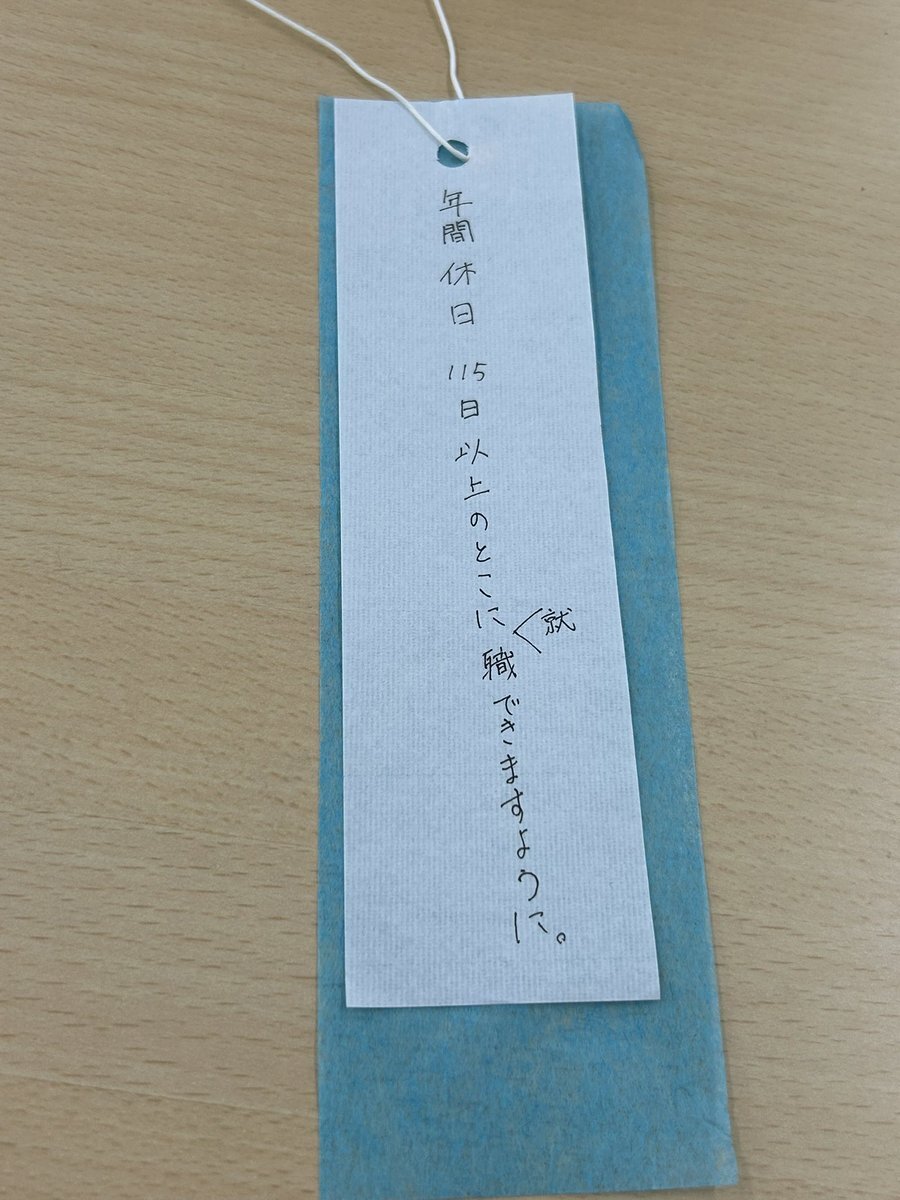 年間休日 115日以上のとこに就職できますように。